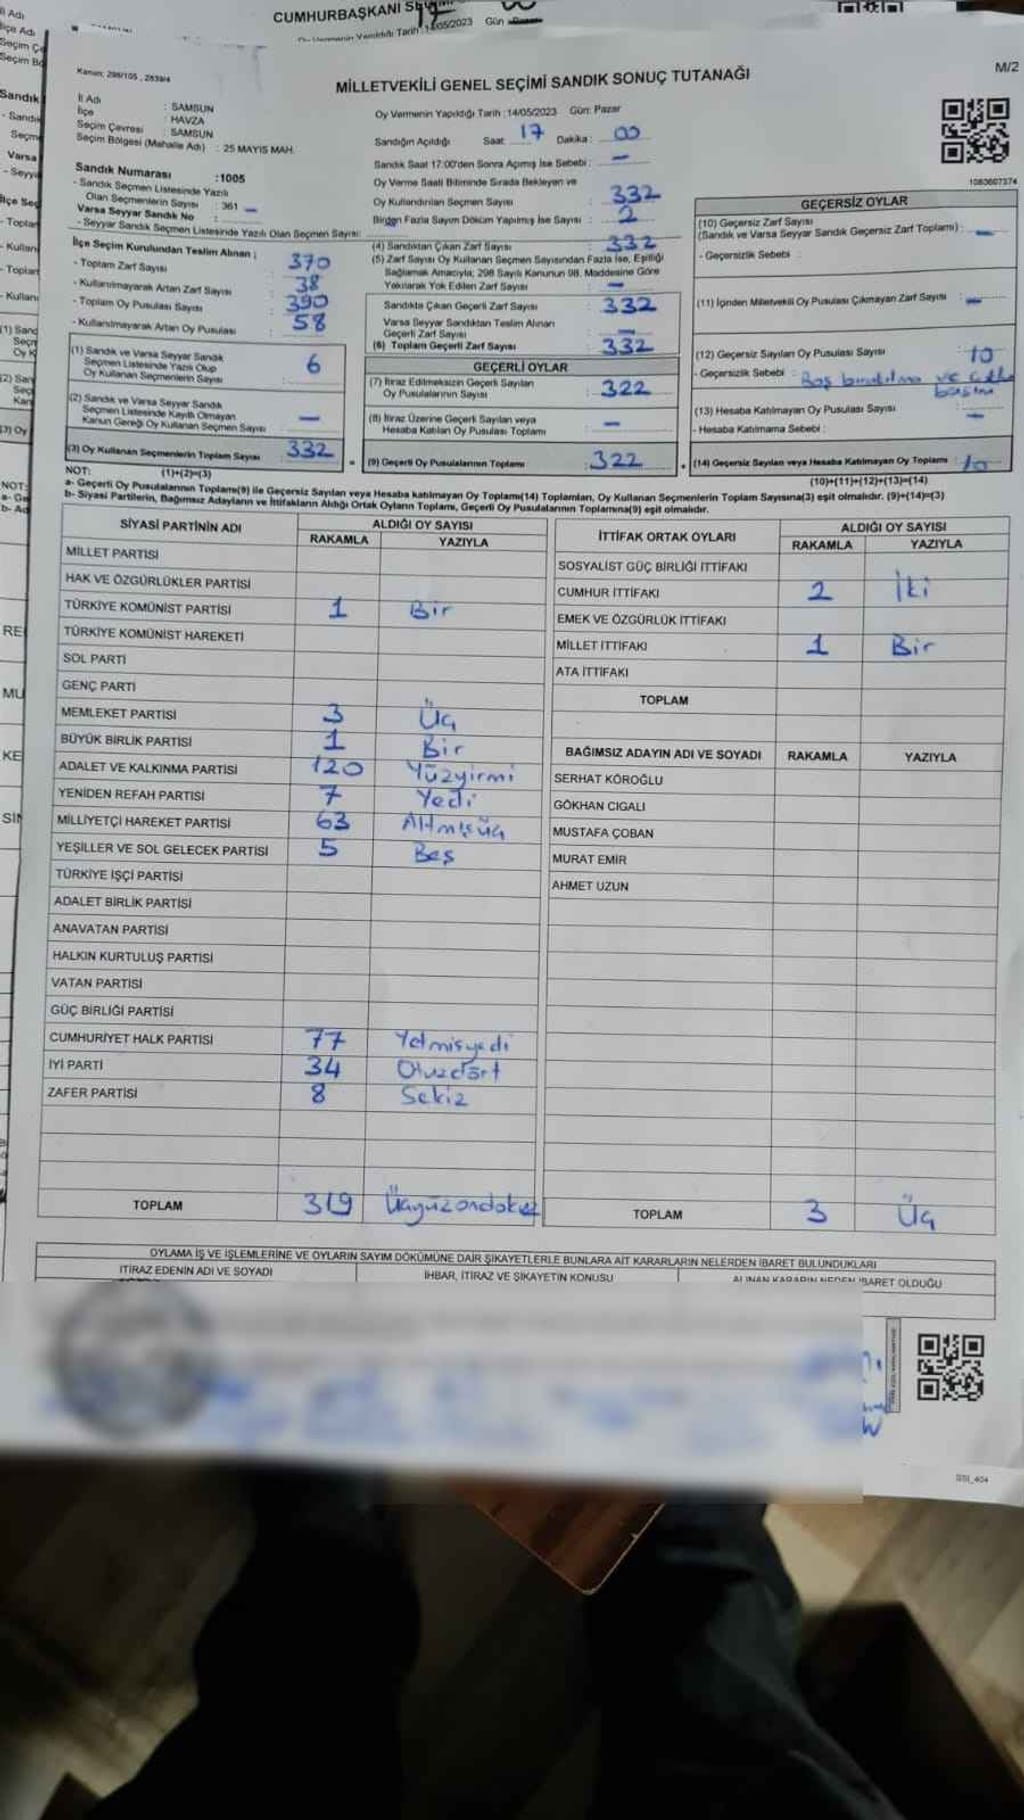 CUMHURBAŞKANI
MİLLETVEKİLİ GENEL SEÇİMİ SANDIK SONUÇ TUTANAĞI
M/2
Kanun: 298/105 , 2839/4
İl Adı : SAMSUN
İlçe : HAVZA
Seçim Çevresi : SAMSUN
Seçim Bölgesi (Mahalle Adı) : 25 MAYIS MAH.
Sandık Numarası :1005
- Sandık Seçmen Listesinde Yazılı
Olan Seçmenlerin Sayısı : 361 –
Varsa Seyyar Sandık No :
- Seyyar Sandık Seçmen Listesinde Yazılı Olan Seçmen Sayısı:
İlçe Seçim Kurulundan Teslim Alınan :
- Toplam Zarf Sayısı : 370
- Kullanılmayarak Artan Zarf Sayısı : 38
- Toplam Oy Pusulası Sayısı : 390
- Kullanılmayarak Artan Oy Pusulası : 58
(1) Sandık ve Varsa Seyyar Sandık
Seçmen Listesinde Yazılı Olup
Oy Kullanan Seçmenlerin Sayısı : 6
(2) Sandık ve Varsa Seyyar Sandık
Seçmen Listesinde Kayıtlı Olmayan
Kanun Gereği Oy Kullanan Seçmen Sayısı : –
(3) Oy Kullanan Seçmenlerin Toplam Sayısı : 332
Oy Vermenin Yapıldığı Tarih :14/05/2023 Gün: Pazar
Sandığın Açıldığı Saat: 17 Dakika : 00
Sandık Saat 17:00'den Sonra Açımış İse Sebebi : –
Oy Verme Saati Bitiminde Sırada Bekleyen ve
Oy Kullandırılan Seçmen Sayısı : 332
Birden Fazla Sayım Döküm Yapılmış İse Sayısı : 2
(4) Sandıktan Çıkan Zarf Sayısı : 332
(5) Zarf Sayısı Oy Kullanan Seçmen Sayısından Fazla İse, Eşitliği
Sağlamak Amacıyla; 298 Sayılı Kanunun 98. Maddesine Göre
Yakılarak Yok Edilen Zarf Sayısı : –
Sandıkta Çıkan Geçerli Zarf Sayısı : 332
Varsa Seyyar Sandıktan Teslim Alınan
Geçerli Zarf Sayısı : –
(6) Toplam Geçerli Zarf Sayısı : 332
GEÇERLİ OYLAR
(7) İtiraz Edilmeksizin Geçerli Sayılan
Oy Pusulalarının Sayısı : 322
(8) İtiraz Üzerine Geçerli Sayılan veya
Hesaba Katılan Oy Pusulası Toplamı : –
(9) Geçerli Oy Pusulalarının Toplamı : 322
1083607374
GEÇERSİZ OYLAR
(10) Geçersiz Zarf Sayısı
(Sandık ve Varsa Seyyar Sandık Geçersiz Zarf Toplamı) : –
- Geçersizlik Sebebi :
(11) İçinden Milletvekili Oy Pusulası Çıkmayan Zarf Sayısı : –
(12) Geçersiz Sayılan Oy Pusulası Sayısı : 10
- Geçersizlik Sebebi : Boş bırakılma ve
basımı
(13) Hesaba Katılmayan Oy Pusulası Sayısı : –
- Hesaba Katılmama Sebebi :
(14) Geçersiz Sayılan veya Hesaba Katılmayan Oy Toplamı : 10
NOT: (1)+(2)=(3)
(10)+(11)+(12)+(13)=(14)
a- Geçerli Oy Pusulalarının Toplamı(9) ile Geçersiz Sayılan veya Hesaba katılmayan Oy Toplamı(14) Toplamları, Oy Kullanan Seçmenlerin Toplam Sayısına(3) eşit olmalıdır. (9)+(14)=(3)
b- Siyasi Partilerin, Bağımsız Adayların ve İttifakların Aldığı Ortak Oyların Toplamı, Geçerli Oy Pusulalarının Toplamına(9) eşit olmalıdır.
SİYASİ PARTİNİN ADI ALDIĞI OY SAYISI
RAKAMLA YAZIYLA
MİLLET PARTİSİ
HAK VE ÖZGÜRLÜKLER PARTİSİ
TÜRKİYE KOMÜNİST PARTİSİ 1 Bir
TÜRKİYE KOMÜNİST HAREKETİ
SOL PARTİ
GENÇ PARTİ
MEMLEKET PARTİSİ 3 Üç
BÜYÜK BİRLİK PARTİSİ 1 Bir
ADALET VE KALKINMA PARTİSİ 120 Yüzyirmi
YENİDEN REFAH PARTİSİ 7 Yedi
MİLLİYETÇİ HAREKET PARTİSİ 63 Altmışüç
YEŞİLLER VE SOL GELECEK PARTİSİ 5 Beş
TÜRKİYE İŞÇİ PARTİSİ
ADALET BİRLİK PARTİSİ
ANAVATAN PARTİSİ
HALKIN KURTULUŞ PARTİSİ
VATAN PARTİSİ
GÜÇ BİRLİĞİ PARTİSİ
CUMHURİYET HALK PARTİSİ 77 Yetmişyedi
İYİ PARTİ 34 Otuzdört
ZAFER PARTİSİ 8 Sekiz
TOPLAM 319 Üçyüzondokuz
İTTİFAK ORTAK OYLARI ALDIĞI OY SAYISI
RAKAMLA YAZIYLA
SOSYALİST GÜÇ BİRLİĞİ İTTİFAKI
CUMHUR İTTİFAKI 2 İki
EMEK VE ÖZGÜRLÜK İTTİFAKI
MİLLET İTTİFAKI 1 Bir
ATA İTTİFAKI
TOPLAM
BAĞIMSIZ ADAYIN ADI VE SOYADI RAKAMLA YAZIYLA
SERHAT KÖROĞLU
GÖKHAN CIGALI
MUSTAFA ÇOBAN
MURAT EMİR
AHMET UZUN
TOPLAM 3 Üç
OYLAMA İŞ VE İŞLEMLERİNE VE OYLARIN SAYIM DÖKÜMÜNE DAİR ŞİKAYETLERLE BUNLARA AİT KARARLARIN NELERDEN İBARET BULUNDUKLARI
İTİRAZ EDENİN ADI VE SOYADI İHBAR, İTİRAZ VE ŞİKAYETİN KONUSU ALINAN KARARIN NEDEN İBARET OLDUĞU